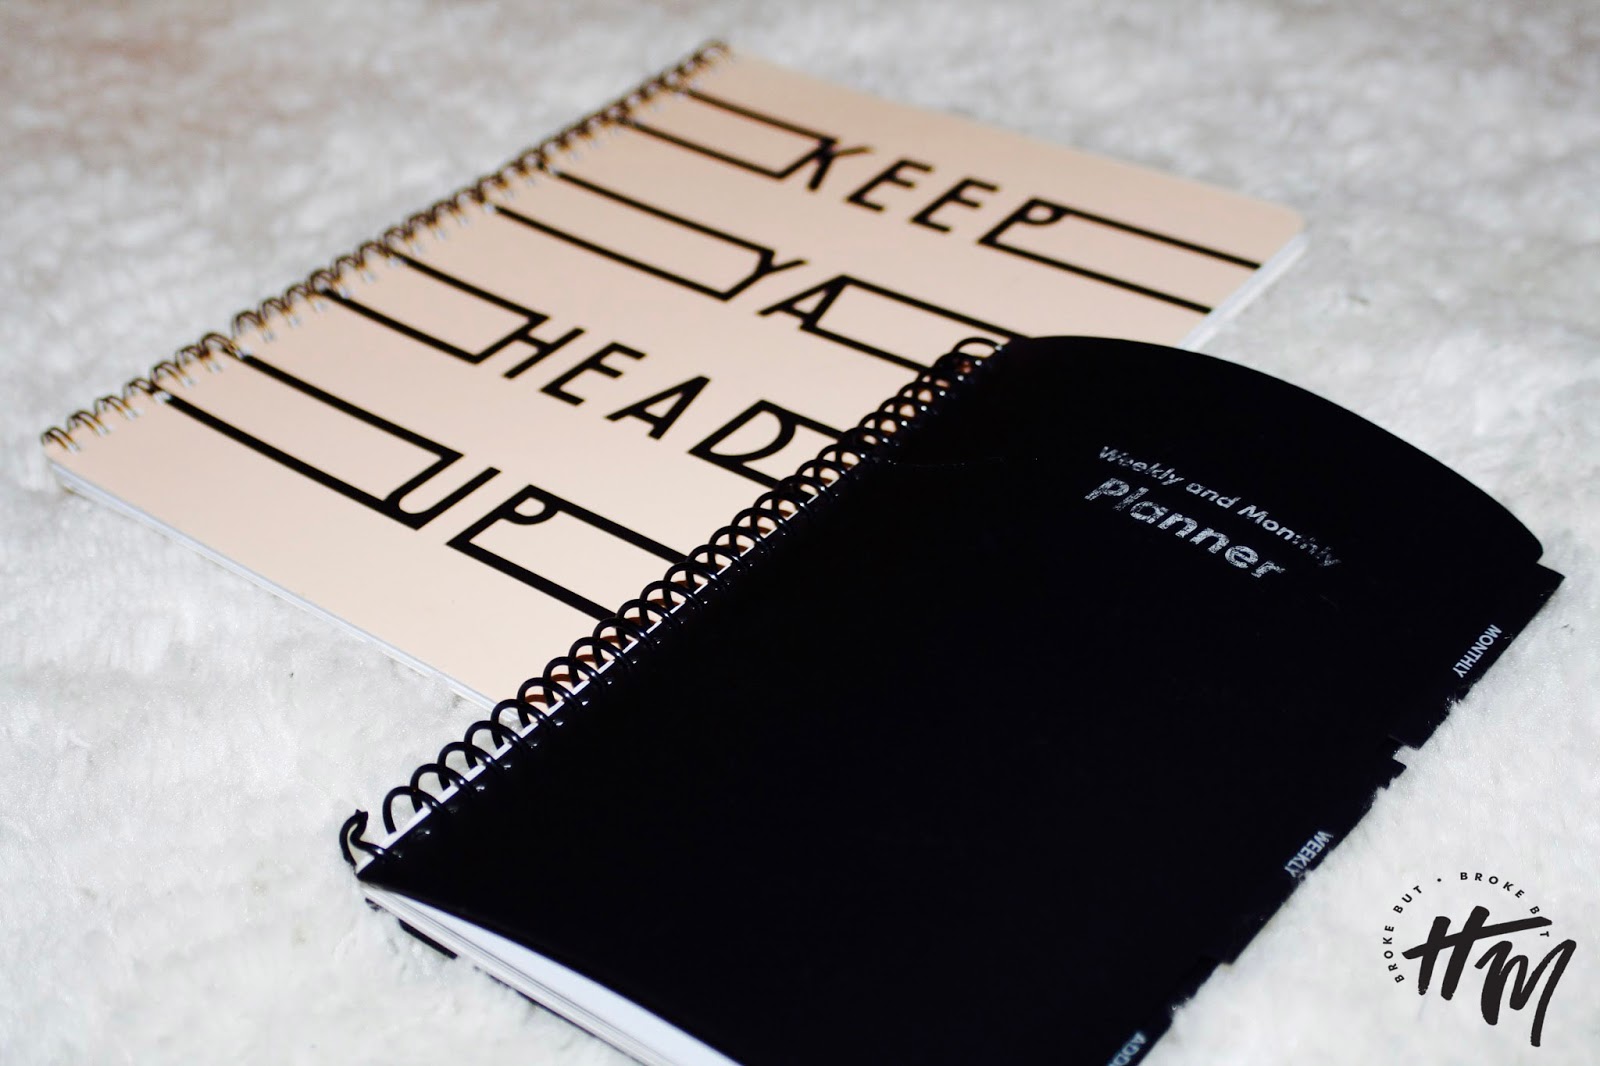 KEEP
YA
HEAD
UP
Weekly and Monthly
Planner
MONTHLY
WEEKLY
BROKE BUT • BROKE BUT
HM